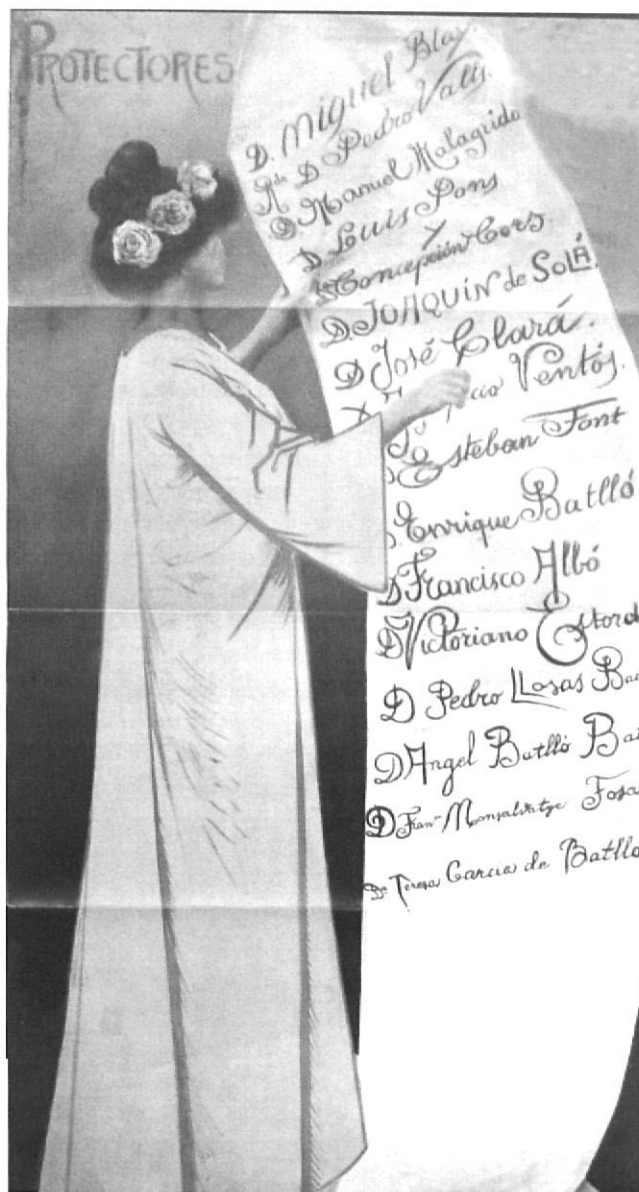 PROTECTORES
D. Miguel Blay.
Rdo D Pedro Valls.
D Manuel Malagrida
D Louis Pons
Y
Da Concepción Cors.
D. JOAQUÍN de SOLÁ.
D José Clará.
Ventós.
D Esteban Font
D. Enrique Batlló
D Francisco Albó
D Victoriano Estord
D Pedro Llosas Bad
D Angel Batlló Bat
D Fran.co Monsalvatge Fosa
Da Teresa Garcia de Batlló